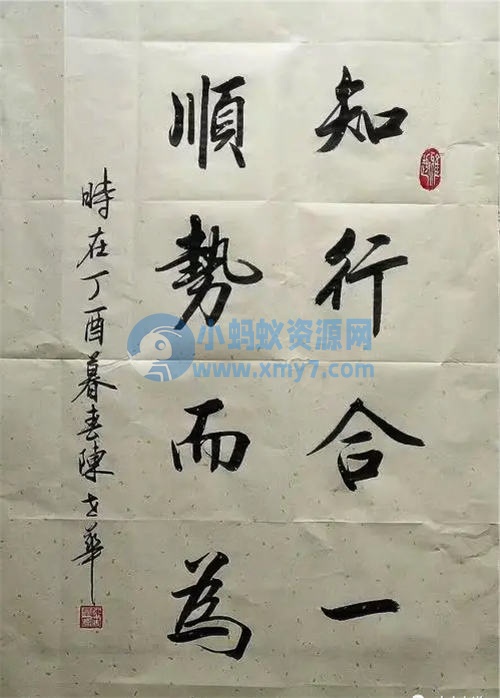 知行合一
順勢而為
時在丁酉暮春陳世華
小蚂蚁资源网
www.xmy7.com